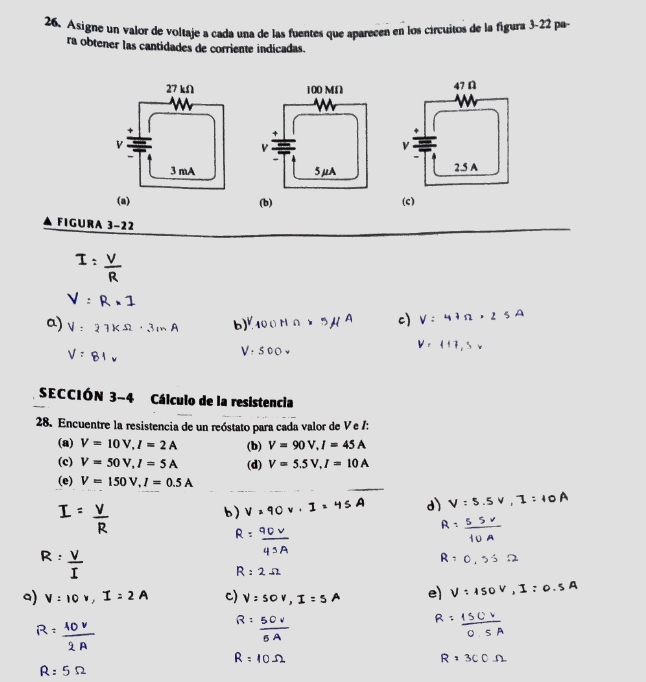 26. Asigne un valor de voltaje a cada una de las fuentes que aparecen en los circuitos de la figura 3-22 pa-
ra obtener las cantidades de corriente indicadas.
27 kΩ
V
+
−
3 mA
(a)
100 MΩ
V
+
−
5 μA
(b)
47 Ω
V
+
−
2.5 A
(c)
▲ FIGURA 3–22
I = V/R
V = R × I
a) V = 27KΩ · 3mA
V = 81 v
b) V = 100MΩ × 5μA
V = 500 v
c) V = 47Ω × 2.5 A
V = 117,5 v
SECCIÓN 3–4 Cálculo de la resistencia
28. Encuentre la resistencia de un reóstato para cada valor de V e I:
(a) V = 10 V, I = 2 A (b) V = 90 V, I = 45 A
(c) V = 50 V, I = 5 A (d) V = 5.5 V, I = 10 A
(e) V = 150 V, I = 0.5 A
I = V/R
R = V/I
a) V = 10 v, I = 2 A
R = 10 v / 2 A
R = 5 Ω
b) V = 90 v, I = 45 A
R = 90 v / 45 A
R = 2 Ω
c) V = 50 v, I = 5 A
R = 50 v / 5 A
R = 10 Ω
d) V = 5.5 v, I = 10 A
R = 5.5 v / 10 A
R = 0,55 Ω
e) V = 150 v, I = 0.5 A
R = 150 v / 0.5 A
R = 300 Ω